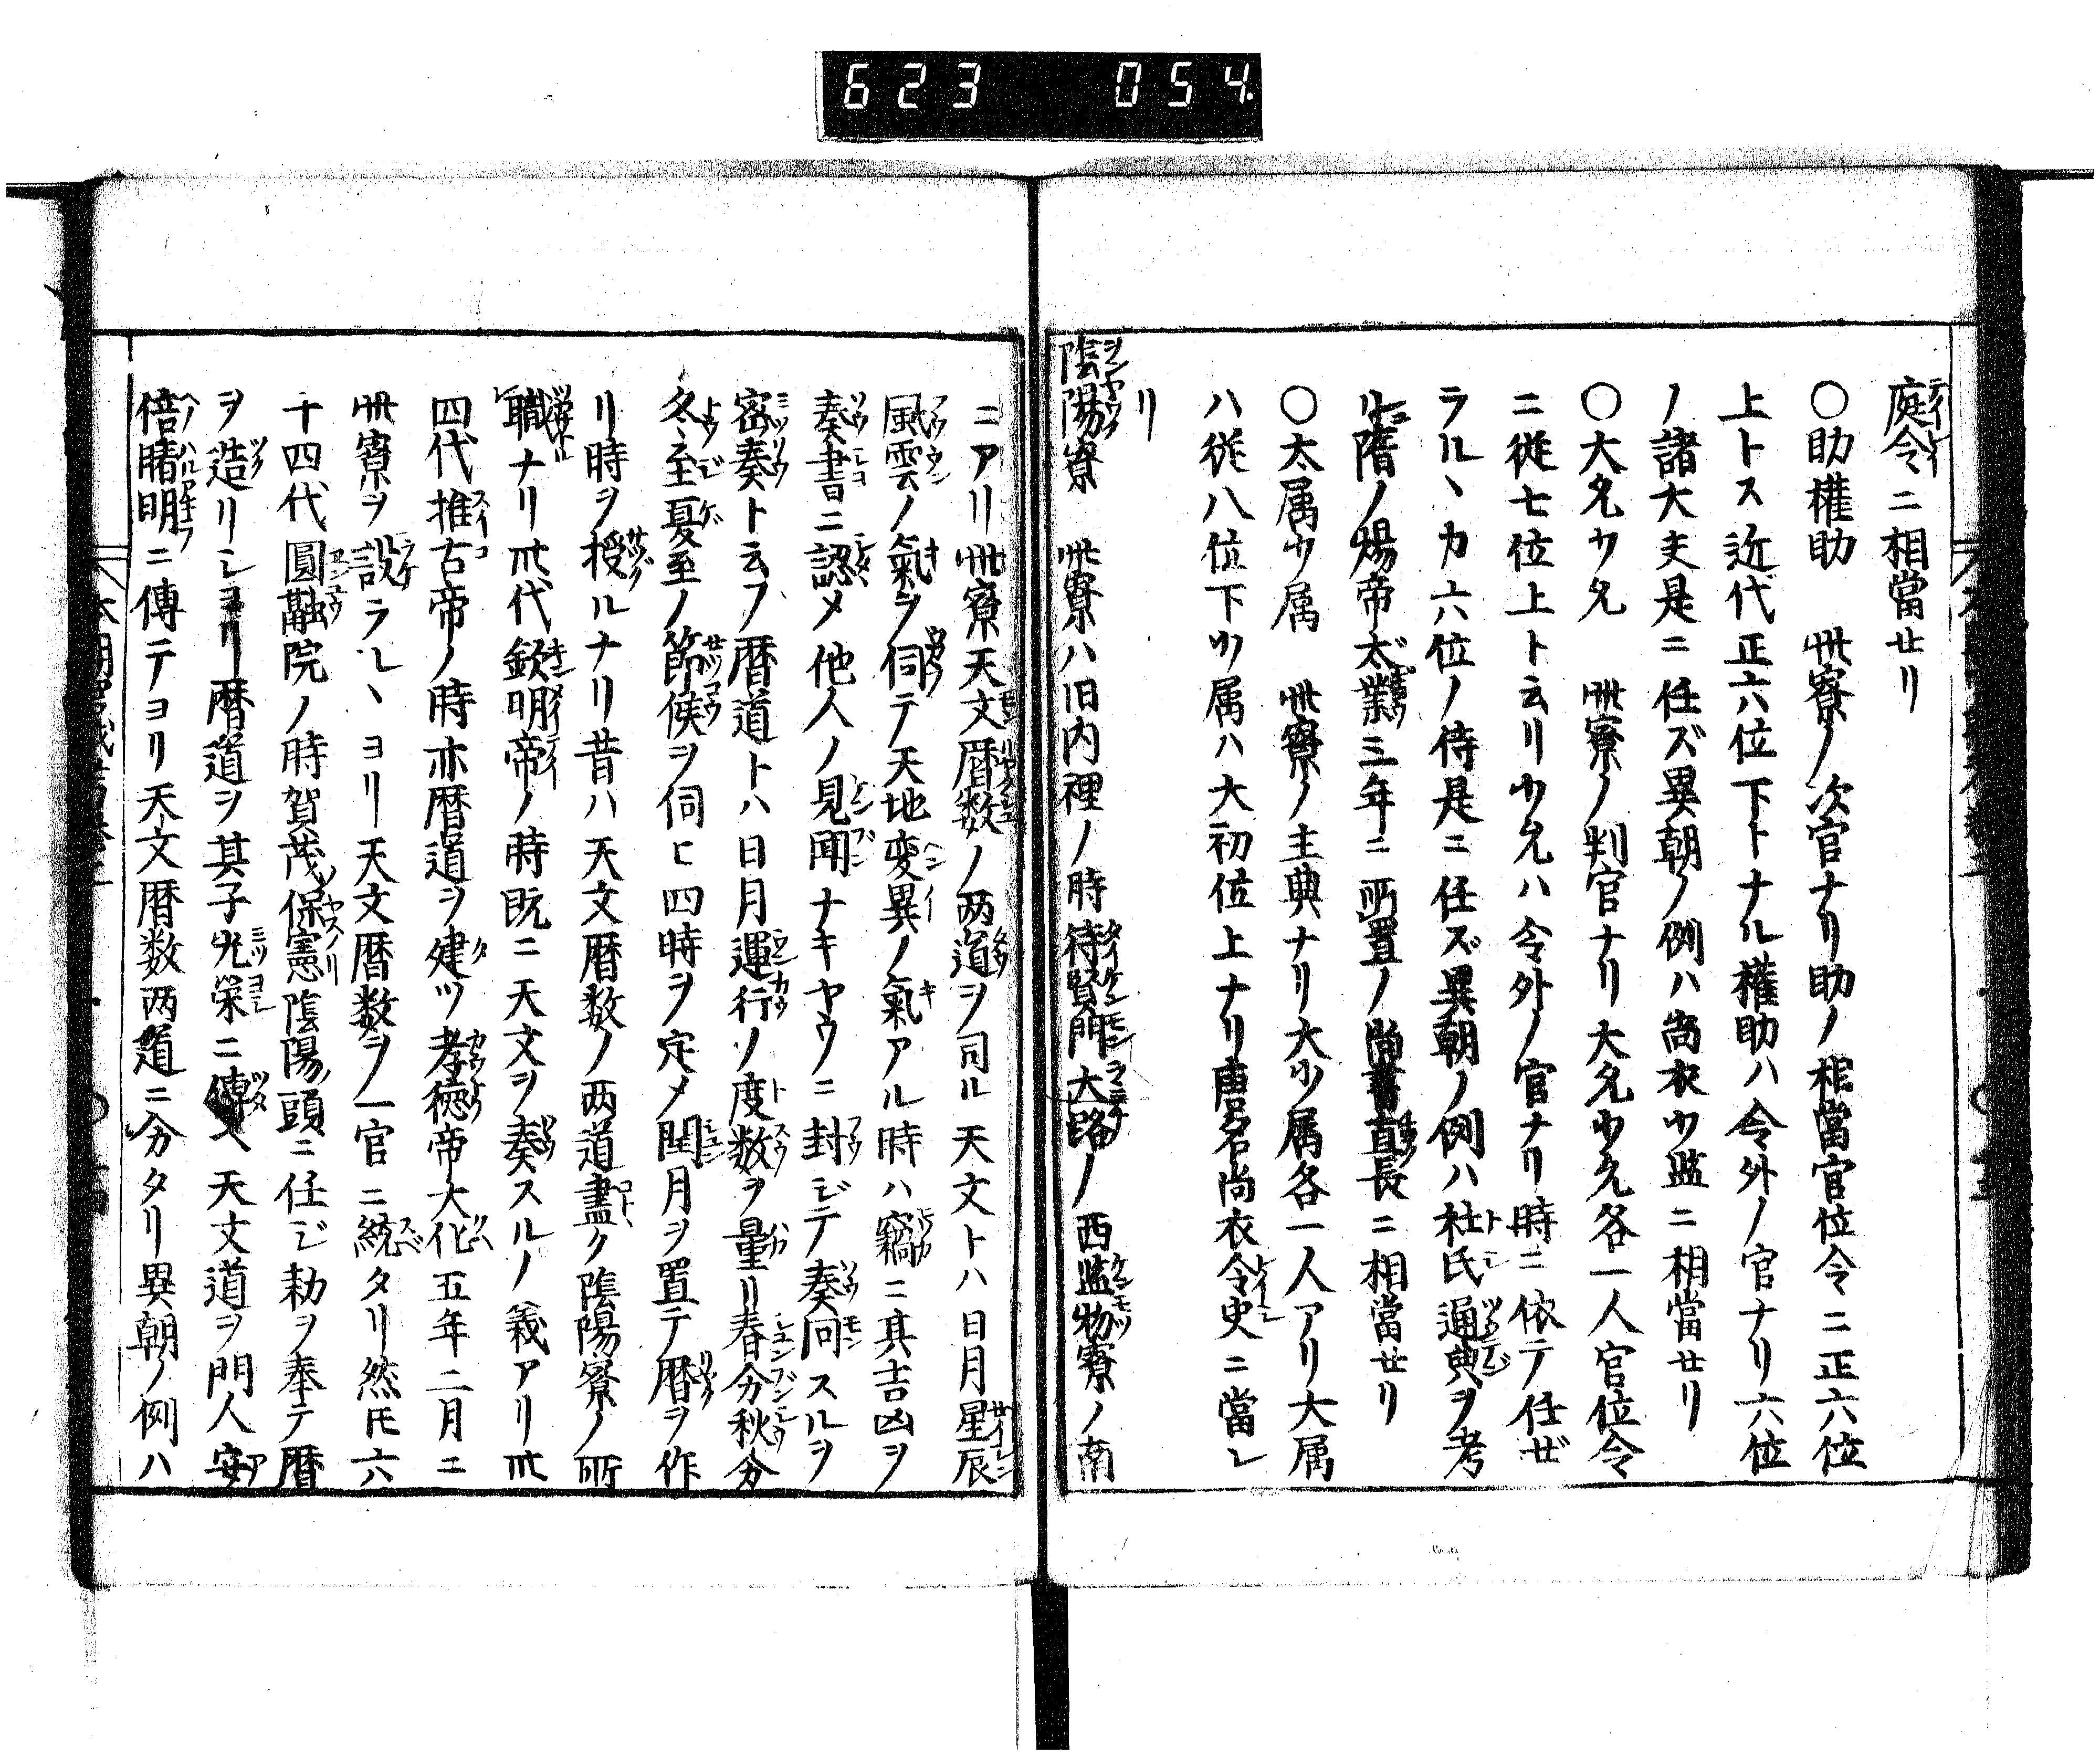 623 054
庭令ニ相當セリ
〇助權助 此寮ノ次官ナリ助ノ相當官位令ニ正六位
上トス近代正六位下トナル權助ハ令外ノ官ナリ六位
ノ諸大夫是ニ任ズ異朝ノ例ハ尚衣少監ニ相當セリ
〇大允少允 此寮ノ判官ナリ大允少允各一人官位令
ニ從七位上ト云リ少允ハ令外ノ官ナリ時ニ依テ任ゼ
ラルヽカ六位ノ侍是ニ任ズ異朝ノ例ハ杜氏通典ヲ考
ルニ隋ノ煬帝太業三年ニ所置ノ尚書直長ニ相當セリ
〇太属少属 此寮ノ主典ナリ大少属各一人アリ大属
ハ從八位下少属ハ大初位上ナリ唐名尚衣令史ニ當レ
リ
陰陽寮 此寮ハ旧内裡ノ時待賢門大路ノ西監物寮ノ南
ニアリ此寮天文暦数ノ两道ヲ司ル天文トハ日月星辰
風雲ノ氣ヲ伺テ天地変異ノ氣アル時ハ竊ニ其吉凶ヲ
奏書ニ認メ他人ノ見聞ナキヤウニ封ジテ奏问スルヲ
密奏ト云フ暦道トハ日月運行ノ度数ヲ量リ春分秋分
冬至夏至ノ節候ヲ伺ヒ四時ヲ定メ閏月ヲ置テ暦ヲ作
リ時ヲ授ルナリ昔ハ天文暦数ノ两道盡ク陰陽寮ノ所
職ナリ卅代欽明帝ノ時既ニ天文ヲ奏スルノ義アリ卅
四代推古帝ノ時亦暦道ヲ建ツ孝徳帝大化五年二月ニ
此寮ヲ設ラレヽヨリ天文暦数ヲ一官ニ統タリ然𪜈六
十四代圓融院ノ時賀茂保憲陰陽頭ニ任ジ勅ヲ奉テ暦
ヲ造リシヨリ暦道ヲ其子光栄ニ傳ヘ天文道ヲ門人安
倍晴明ニ傳テヨリ天文暦数两道ニ分タリ異朝ノ例ハ